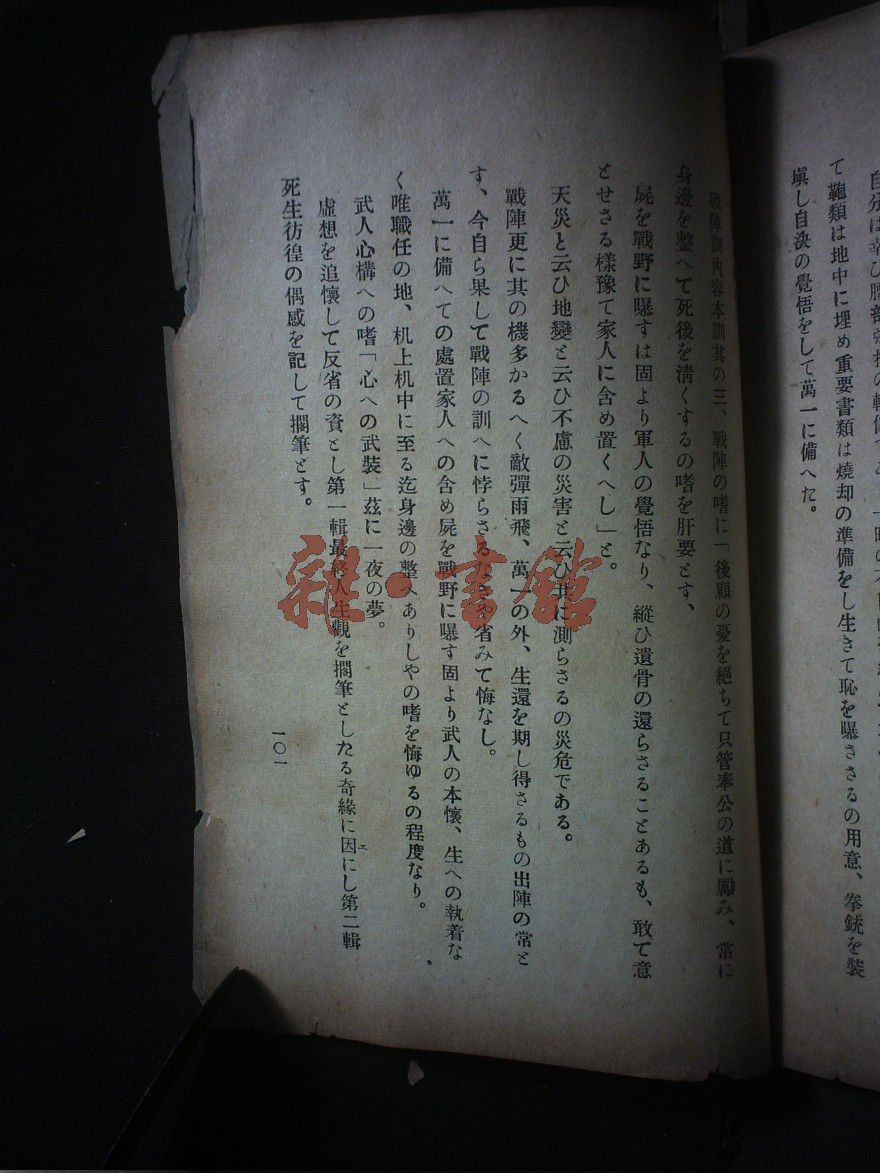 て鞄類は地中に埋め重要書類は燒却の準備をし生きて恥を曝ささるの用意、拳銃を裝
塡し自決の覺悟をして萬一に備へた。
戰陣訓內容本訓其の三、戰陣の嗜に「後顧の憂を絶ちて只管奉公の道に勵み、常に
身邊を整へて死後を淸くするの嗜を肝要とす、
屍を戰野に曝すは固より軍人の覺悟なり、縱ひ遺骨の還らさることあるも、敢て意
とせさる樣豫て家人に含め置くへし」と。
天災と云ひ地變と云ひ不慮の災害と云ひ共に測らさるの災危である。
戰陣更に其の機多かるへく敵彈雨飛、萬一の外、生還を期し得さるもの出陣の常と
す、今自ら果して戰陣の訓へに悖らさるなきや省みて悔なし。
萬一に備へての處置家人への含め屍を戰野に曝す固より武人の本懷、生への執着な
く唯職任の地、机上机中に至る迄身邊の整へありしやの嗜を悔ゆるの程度なり。
武人心構への嗜「心への武裝」玆に一夜の夢。
虛想を追懷して反省の資とし第一輯最終人生觀を擱筆としたる奇緣に因にし第二輯
エ
死生彷徨の偶感を記して擱筆とす。
一〇一
雜·書館